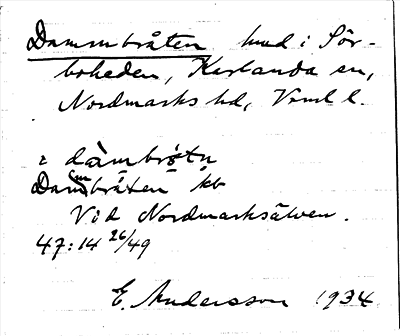 Dammbråten, hmd i Sör-
boheden, Karlanda sn,
Nordmarks hd, Vrml l.
dàmbrɷtn
Dammbråten kb
Vid Nordmarksälven.
47:14 26/49
E. Andersson 1934